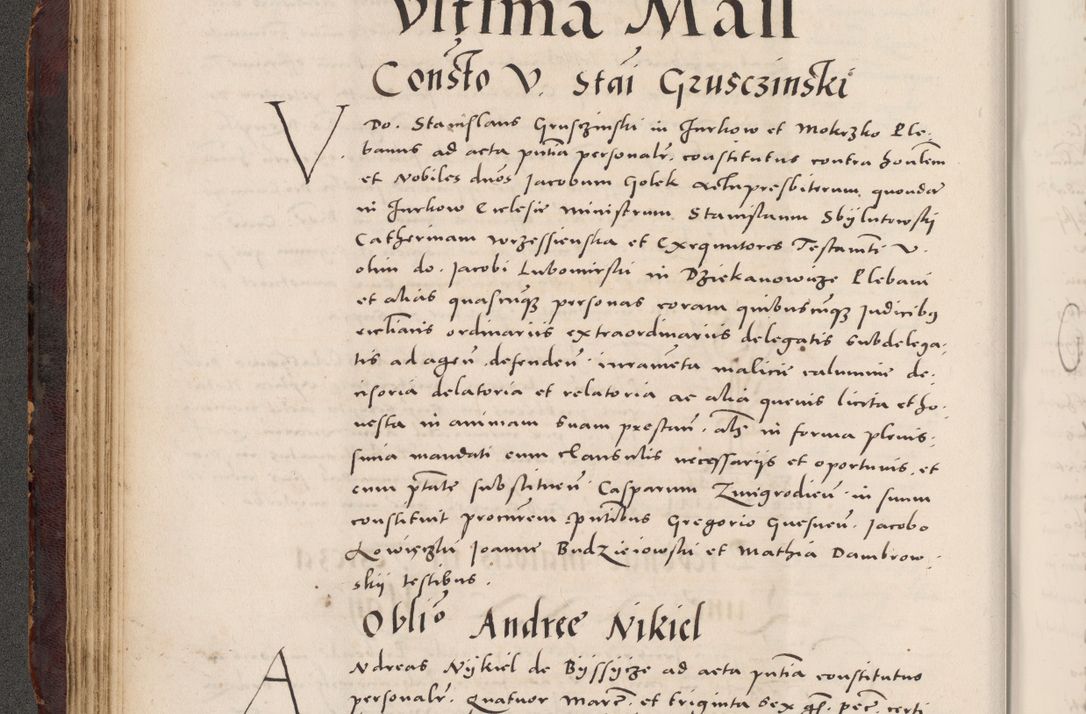 Ultima Maii
Consto V. Stai Grusczinski
V Do. Stanislaus Grusczinski in Jurkow et Mokrzko Ple-
banus ad acta pntia personalr. constitutus contra honlem
et Nobiles duos Jacobum Golek Altrpresbiterum, quondā
in Jurkow Ecclesie ministrum Stanislaum Sbylutowskj
Catherinam Wrzessienska et Exequutores Testamti V.
olim do. Jacobi Lubomirski in Dziekanowicze Plebani
et alias quascūqz personas coram quibuscūqz Judicibus
ecclianis ordinariis extraordinariis delegatis subdelega-
tis ad agen. defenden. iuramēta malicie calumnie de-
cisoria delatoria et relatoria ac aliā quevis licita et ho-
nesta in animam suam prestan. als in forma plenis-
sima mandati cum clausulis necessarijs et oportunis, et
cum ptate substituen. Casparum Zmigrodien. in suum
constituit procurem pntibus Gregorio Guesnen. Jacobo
Lowieczki Joanne Budzieiowski et Mathia Dambrow-
skij testibus.
Oblio Andree Nikiel
A Ndreas Nykiel de Byssycze ad acta pntia constitutus
personalr. Quatuor Marc. et triginta sex gs. pec. certi